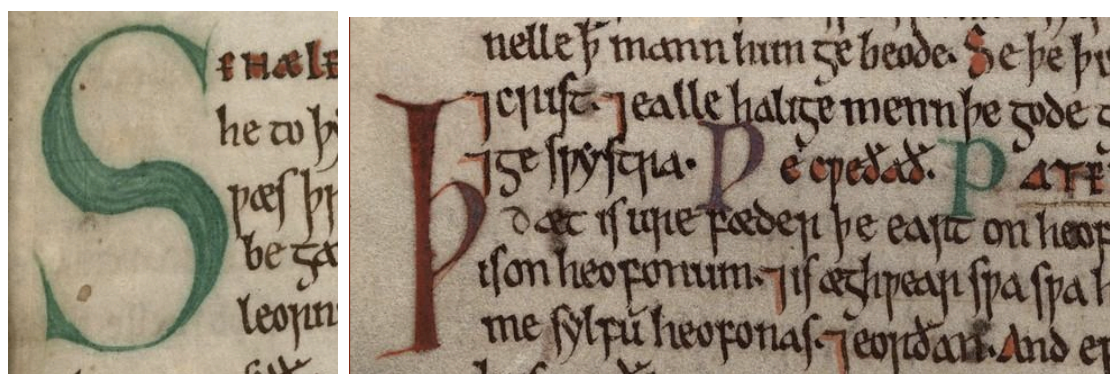 SEHÆLE
he to
ƿæs
be
leorn
nelle ꝥ mann him ge beode. Se þe
⁊ crist. ⁊ ealle halige menn þe gode
⁊ ge sƿystria. Ƿe cƿeðað. PATER
Þ æt is ure fæder þe eart on heof
is on heofonum. ⁊ is æghƿear sƿa sƿa
me sylfū heofonas. ⁊ eorðan. And